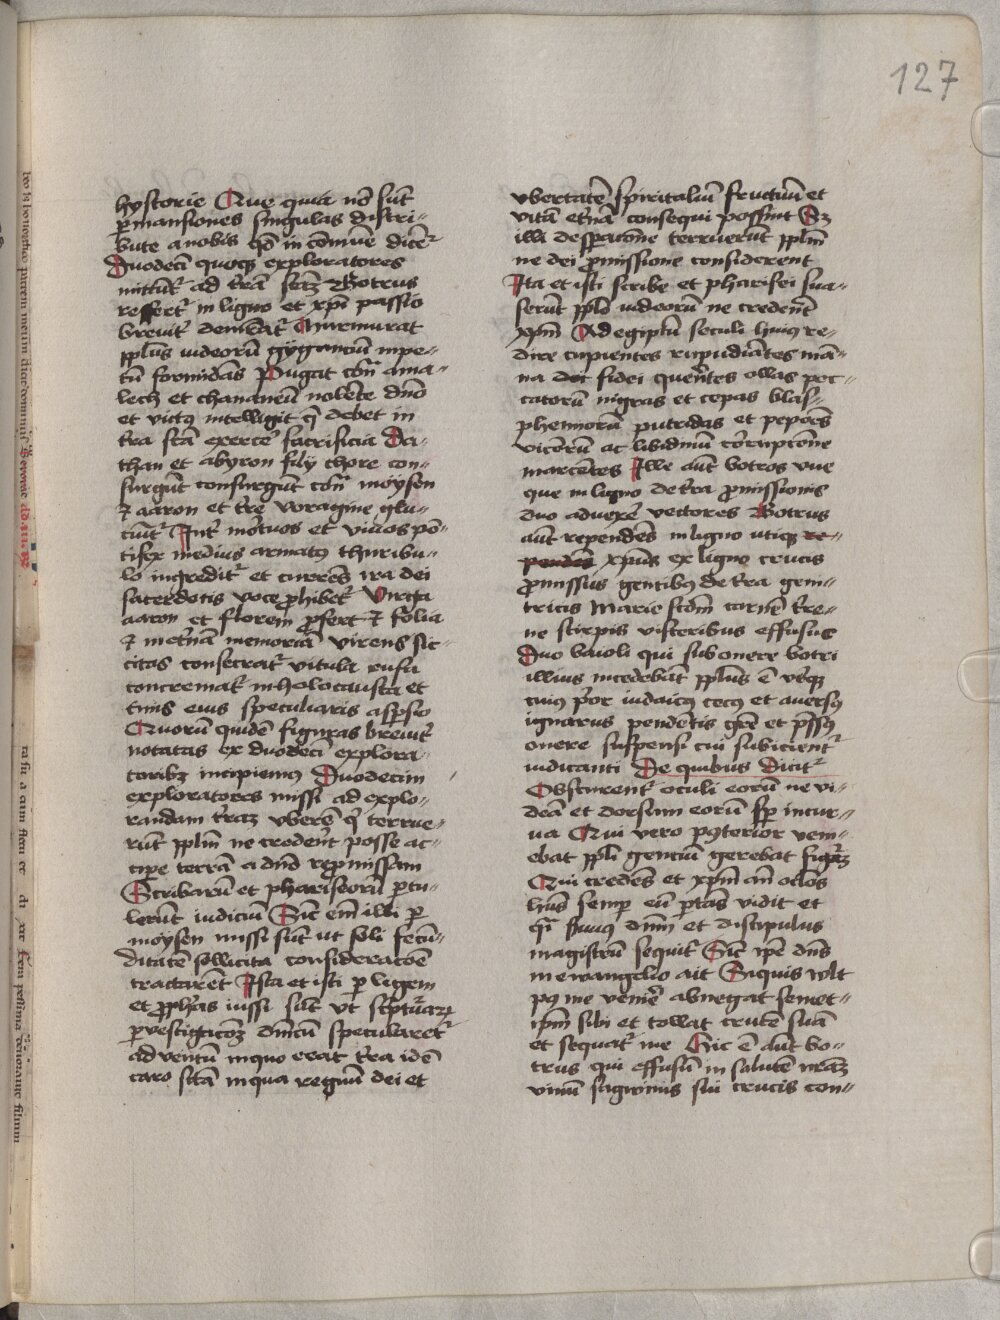 127
hystorie Que quia nō sūt
ꝑ mansiones singulas distri-
bute a nobis qđ in cōmūe dicēt̃
Duodeci quoqꝫ exploratores
mittūt̃ ad t̃rā sc̄āꝫ Botrus
reffert̃ in ligno et xp̄i passio
brevit̃ demōstrat̃ Murmurat
ppl̄us iudeorū gygancium inpe-
tū formidās Pugnat cōt̃ ama-
lech et chananeū nolēte dn̄o
et victꝰ intelligit q̄ debet in
t̃ra sc̄ā exercē sacrificia Da-
than et abyron filij chore con-
surgūt consurgūt cōt̃ moysen
⁊ aaron et t̃re voragine glu-
ciūt̃ Int̃ mōtuos et vivos pō-
tifex medius armatꝰ thuribu-
lo ingredit̃ et currēs ira dei
sacerdotis voce ꝓhibet̃ Virga
aaron et florem ꝓfert ⁊ folia
⁊ in et̃nā memoriā virens sic-
citas consecrat̃ vitula rufa
concremat̃ in holocausta et
cinis eius specularis asꝑsio
Quorū quidē figuras brevit̃
notatas ex duodeci explora-
toribꝫ incipiemꝰ Duodecim
exploratores missi ad explo-
randam t̃raꝫ vberē q̄ terrue-
rūt ppl̄m ne credeñt posse ac-
cipe terrā a dn̄o repmissam
Scribarū et phariseorū ꝑtu-
lerūt iudiciū Sic em̄ illi ꝑ
moysen missi sūt ut soli fecū-
ditatē sollicita consideracōe
tractarēt Ista et isti ꝑ legem
et ꝓphas iussi sūt vt sc̄pturaꝝ
ꝑvestigacōꝫ dn̄icū specularet̃
adventū in quo erat t̃ra idē
caro sc̄ā in qua regnū dei et
vbertatē spiritaliū fructuū et
vitā et̃nā consequi possint Sꝫ
illi despacōne terruerūt ppl̄m
ne dei ꝓmissione considerent
Ita et isti scribe et pharisei sua-
serūt ppl̄o iudeorū ne credeñt
xp̄m Ad egiptū seculi huiꝰ re-
dire cupientes repudiātes mā-
na dei fidei querētes ollas pec-
catorū nigras et cepas blas-
phemiorū putridas et pepōes
vicerū ac libidinū corrupcōne
marcētes Ille aūt botros vue
que in ligno de t̃ra ꝓmissionis
duo advexē vectores Botrus
aūt rependēs in ligno utiqꝫ re-
pendēs xp̄us ex ligno crucis
ꝓmissus gentibꝰ de t̃ra geni-
tricis Marie scd̄m carnē t̃re-
ne stirpis visceribus effusus
Duo baioli qui sub onere botri
illius incedebāt ppl̄us ē vt̃qꝫ
cuiꝰ p̄or iudaicꝰ cecꝰ et aversꝰ
ignarus pendētis gr̄e et p̄ssꝰ
onere suspensi cui subicient̃
iudicanti De quibus dicit̃
Obscurent̃ oculi eorū ne vi-
deā et dorsum eorū sꝑ incur-
ua Qui vero posterior veni-
ebat ppl̄i genciū gerebat figurā
Qui credēs et xp̄m an̄ oc̄los
hn̄s semꝑ eū portās vidit et
q̄i servus dn̄m et discipulus
magistrū sequit̃ Sic ip̄e dn̄s
in ewangelio ait Siquis vlt
pꝰ me venīē abneget semet-
ip̄m sibi et tollat crucē suā
et sequat̃ me Hic ē aūt bo-
trus qui effusū in salutē nr̄āꝫ
vinū sagwinis sui crucis con-